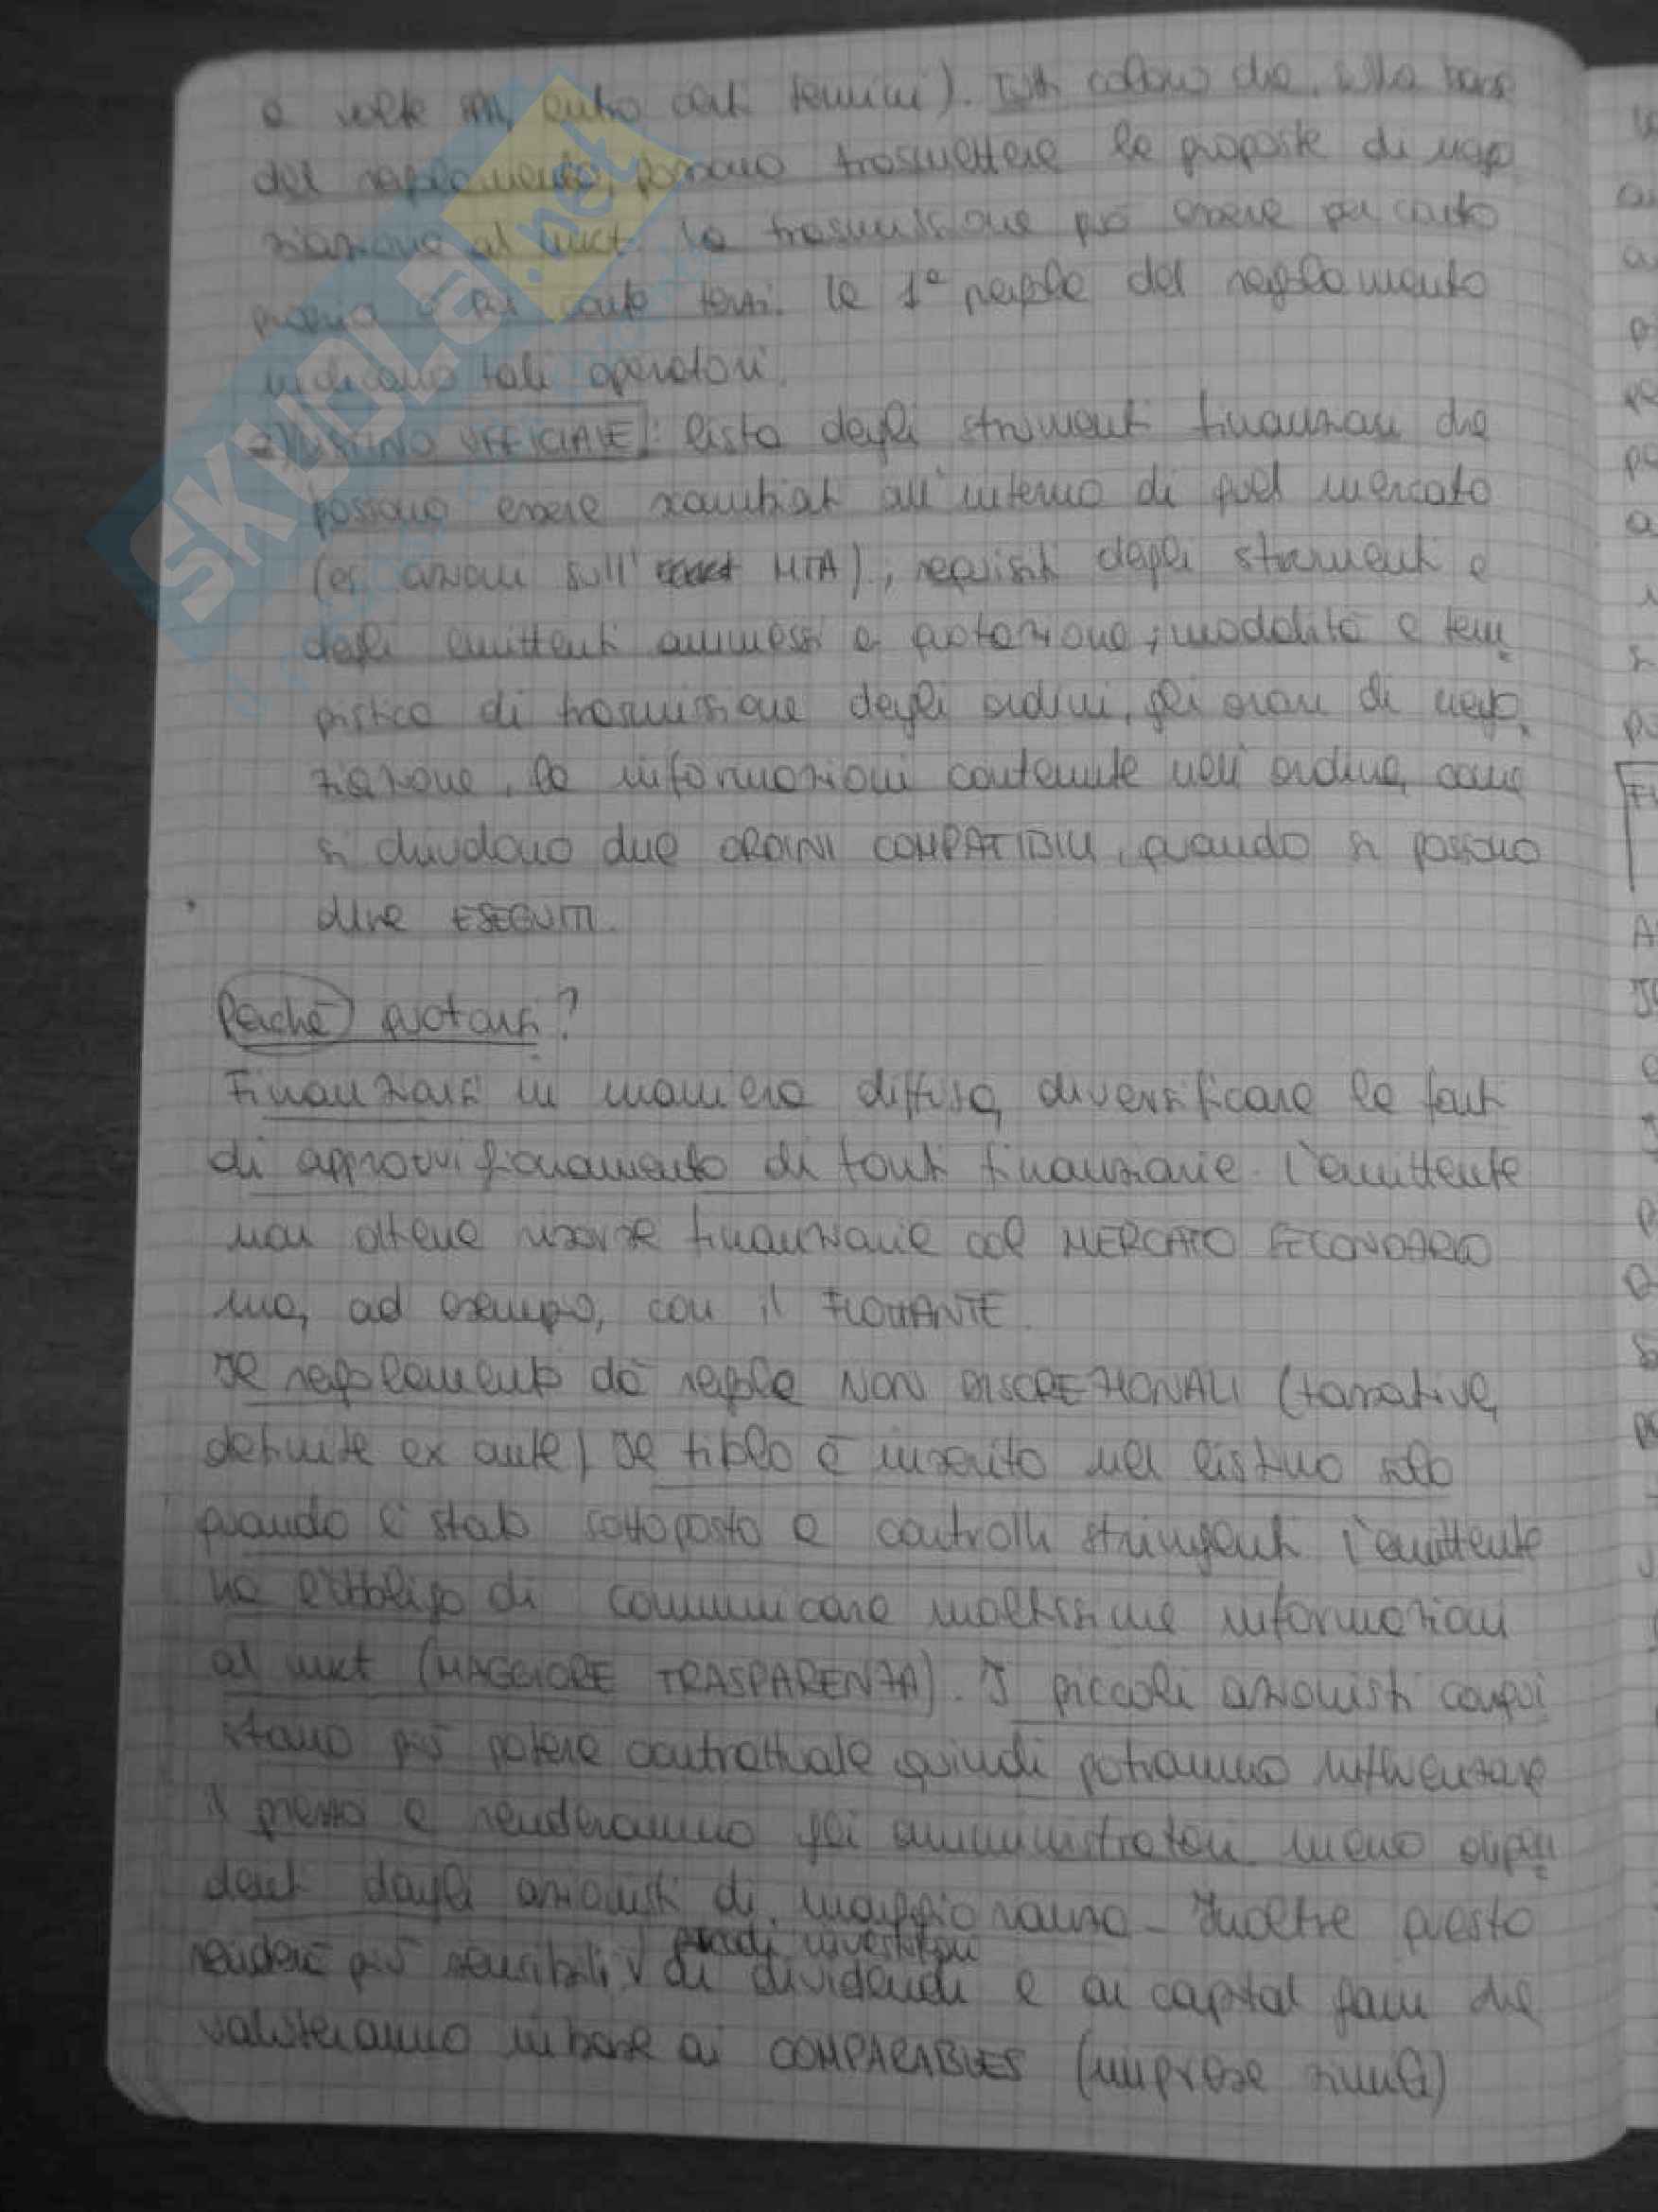 a volte sì, entro certi termini). Tutti coloro che, sulla base
del regolamento, possono trasmettere le proposte di nego
ziazione al mkt. La trasmissione può essere per conto
proprio o per conto terzi. Le 1e regole del regolamento
indicano tali operatori.
2) LISTINO UFFICIALE: lista degli strumenti finanziari che
possono essere scambiati all'interno di quel mercato
(es. azioni sull' MTA), requisiti degli strumenti e
degli emittenti ammessi a quotazione, modalità e tem
pistica di trasmissione degli ordini, gli orari di nego
ziazione, le informazioni contenute nell'ordine, come
si chiudono due ORDINI COMPATIBILI, quando si possono
dire ESEGUITI.
Perché quotarsi?
Finanziarsi in maniera diffusa, diversificare le fonti
di approvvigionamento di fonti finanziarie. L'emittente
non ottiene risorse finanziarie col MERCATO SECONDARIO
ma, ad esempio, con il FLOTTANTE.
Il regolamento dà regole NON DISCREZIONALI (tassative,
definite ex ante). Il titolo è inserito nel listino solo
quando è stato sottoposto a controlli stringenti. L'emittente
ha l'obbligo di comunicare moltissime informazioni
al mkt (MAGGIORE TRASPARENZA). I piccoli azionisti conqui
stano più potere contrattuale quindi potranno influenzare
il prezzo e renderanno gli amministratori meno dipen
denti dagli azionisti di maggioranza. Inoltre questo
investitori
renderà più sensibili ai dividendi e ai capital gain che
valuteranno in base ai COMPARABLES (imprese simili)
SKUOLA.net